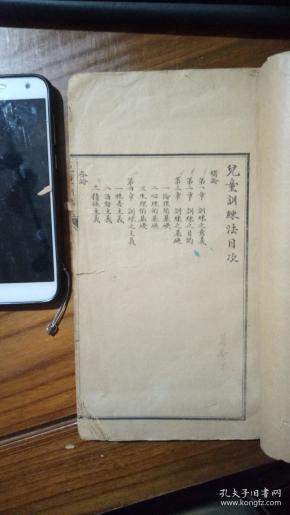 兒童訓練法目次
緒論
第一章 訓練之意義
第二章 訓練之目的
第三章 訓練之基礎
一 倫理的基礎
二 心理的基礎
三 生理的基礎
第四章 訓練之主義
一 積極主義
二 活動主義
各論
孔夫子旧书网